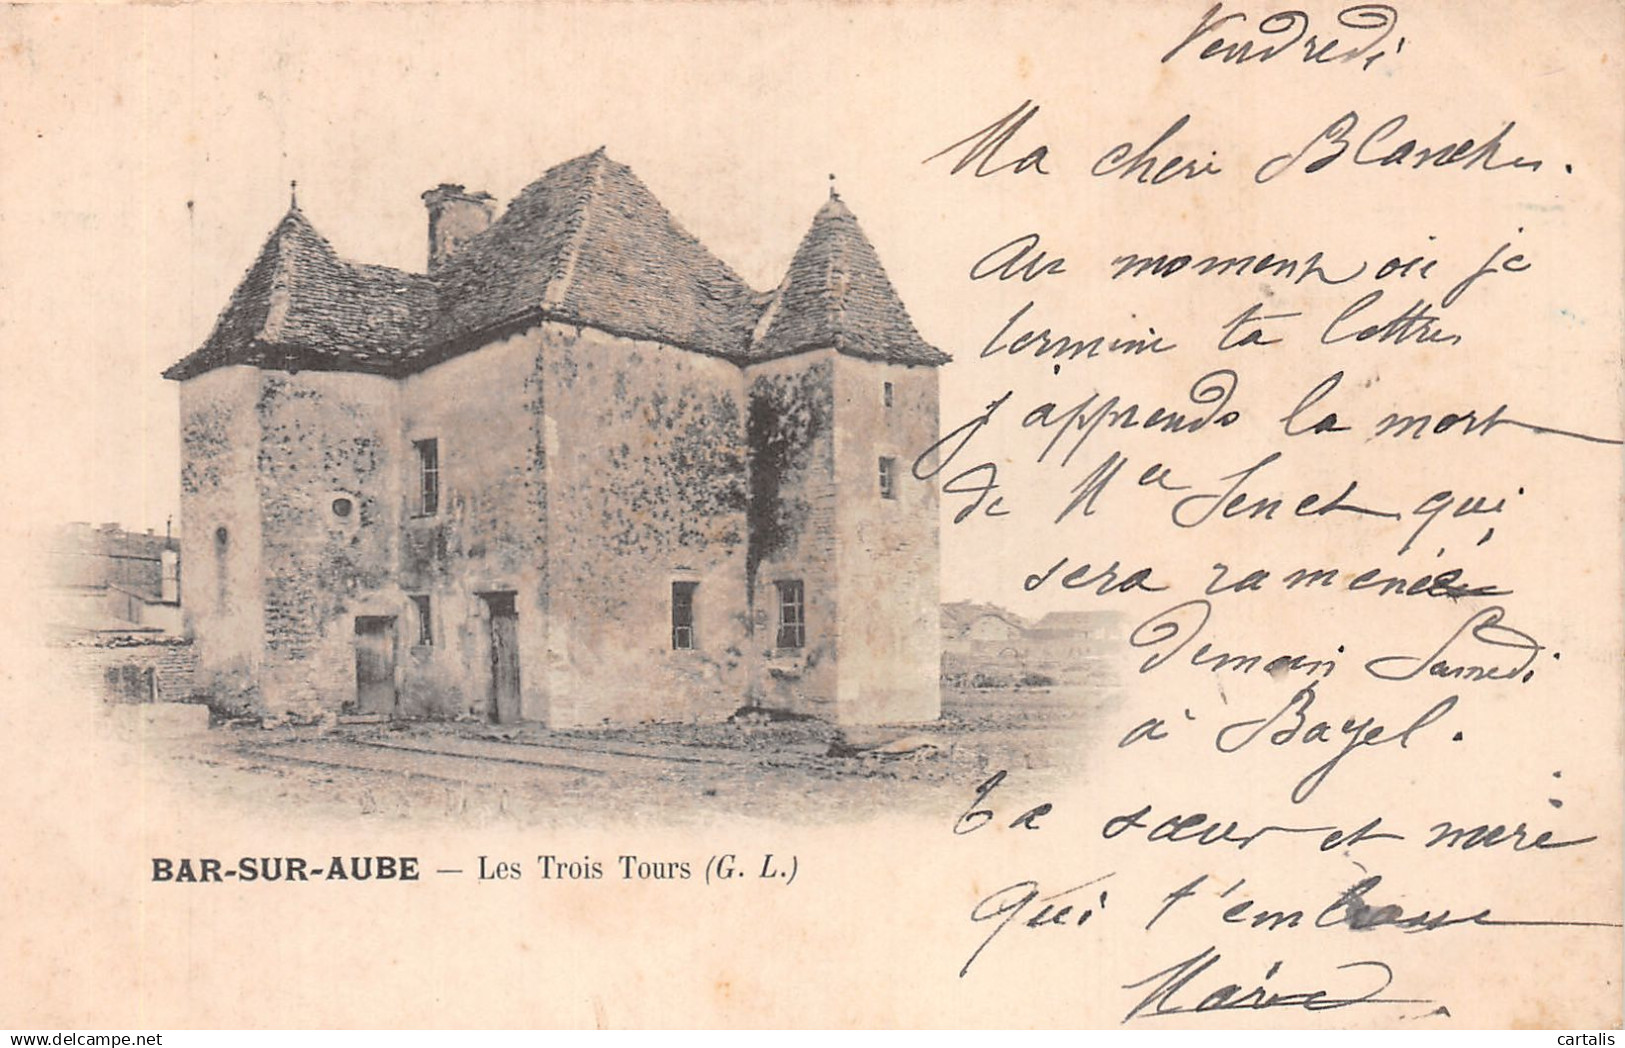 Vendredi
Ma cheri Blanche.
Au moment où je
termine ta lettre
j'apprends la mort
de Me Senet qui
sera ramenée
demain Samedi
à Bayel.
Ta sœur et mère
qui t'embrasse
Marie
BAR-SUR-AUBE — Les Trois Tours (G. L.)
cartalis